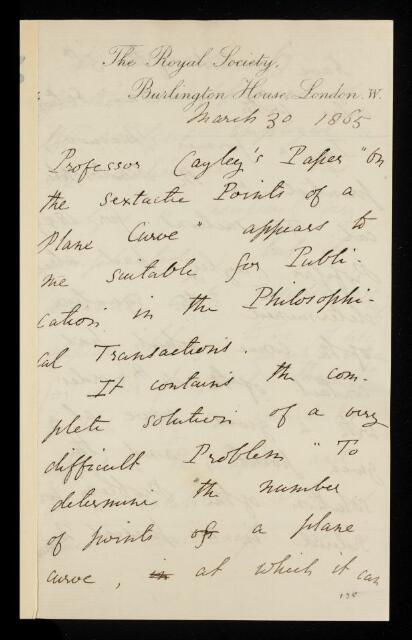 The Royal Society,
Burlington House, London. W.
March 30 1865
Professor Cayley's Paper "On
the sextactic Points of a
Plane Curve" appears to
me suitable for Publi-
cation in the Philosophi-
cal Transactions.
It contains the com-
plete solution of a very
difficult Problem "To
determine the number
of points of a plane
curve, in at which it can